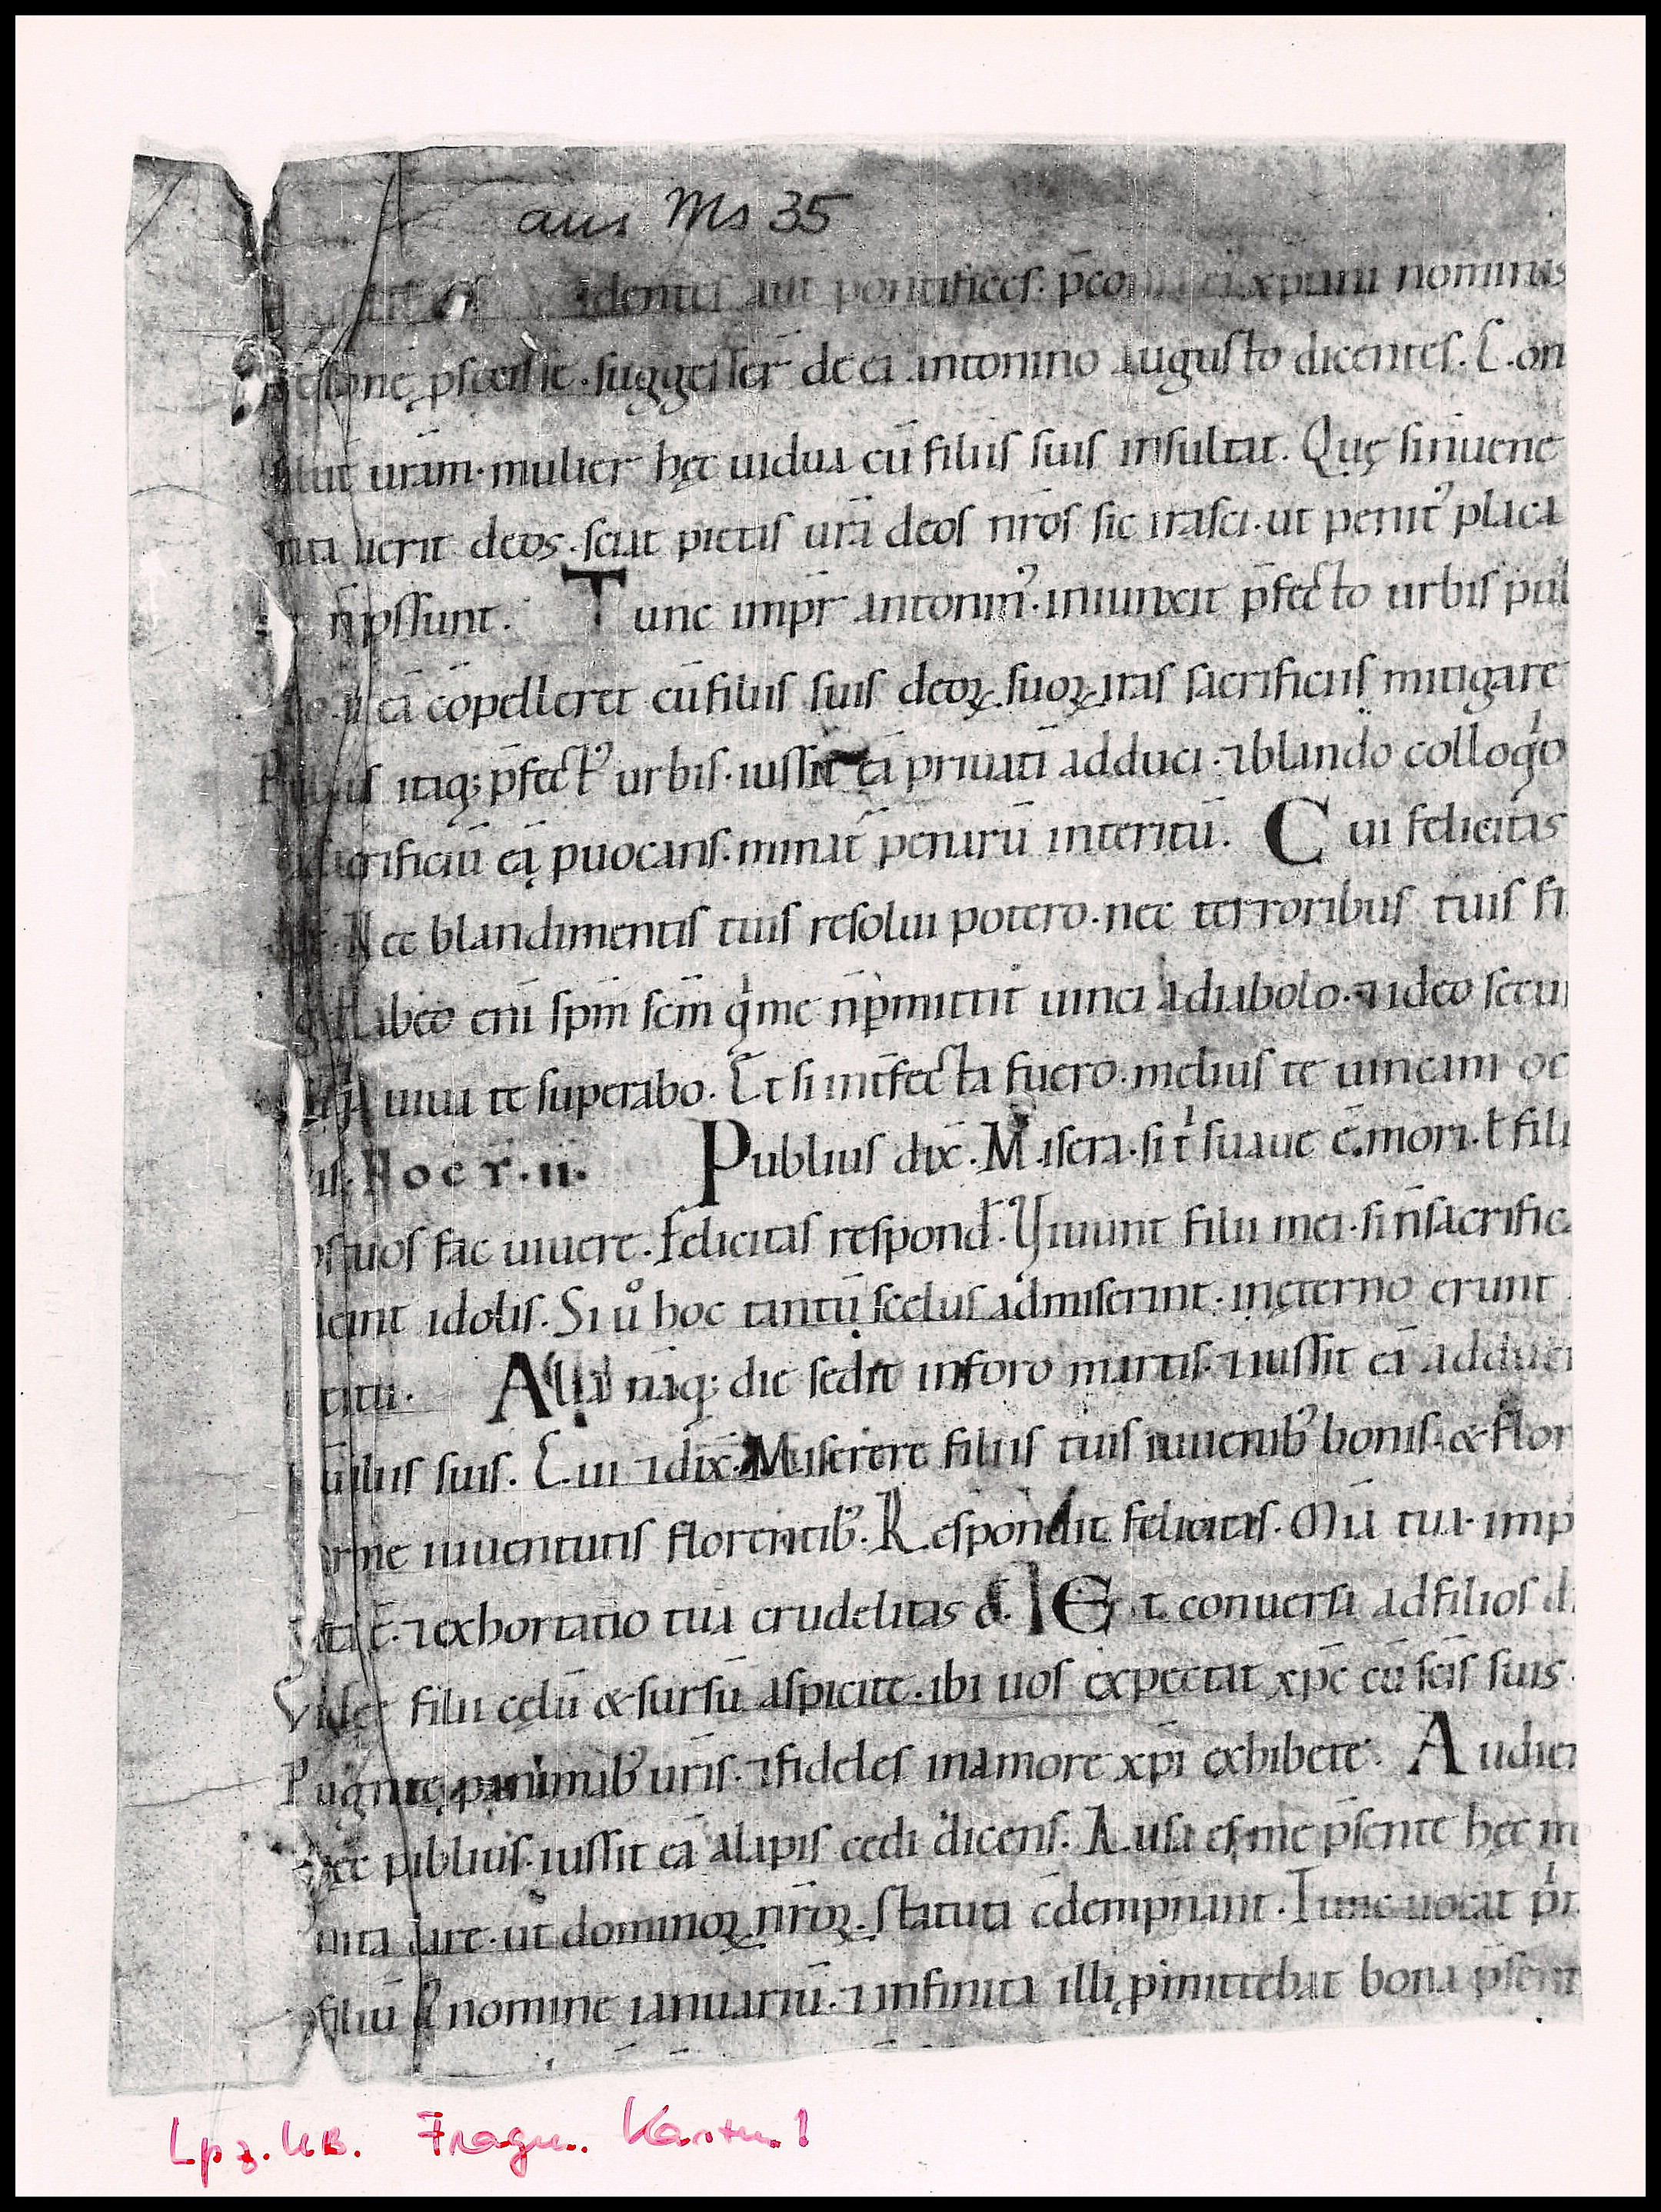 aus Ms 35
identes aut pontifices. p̄co xp̄iani nominis
p̄scessisse. suggesser̄ de ea antonino augusto dicentes. Con
salut̄ ur̄am. mulier hęc uidua cū filiis suis insultat. Quę si n̄ uene
deos. sciat pietas ur̄a deos nr̄os sic irasci. ut penit᷒ placa
n̄ possunt. Tunc imp̄r antonin᷒. iniunxit p̄fecto urbis pub
eā cōpelleret cū filiis suis deoꝝ suoꝝ iras sacrificiis mitigare
itaq; p̄fect᷒ urbis. iussit eā priuatī adduci. ⁊ blando colloqͥo
sacrificiū eā ꝓuocans. minat᷒ penarū interitū. Cui felicitas
Nec blandimentis tuis resolui potero. nec terroribus tuis fr
Habeo enī sp̄m sc̄m qͥ me n̄ p̄mittit uinci a diabolo. ⁊ ideo secu
uiua te superabo. Et si int̄fecta fuero. melius te uincam oc
Hoc r̄. ii. Publius dix̄. Misera. si tͥ suaue ē mori. ł fili
os tuos fac uiuere. Felicitas respond̄. Uiuunt filii mei. si n̄ sacrifica
uerint idolis. Si u͛ hoc tantū scelus admiserint. in ęterno erunt
Alia naq; die sedit in foro martis. ⁊ iussit eā adduci
filiis suis. Cui ⁊ dix̄. Miserere filiis tuis iuuenib᷒ bonis. & flor
iuuentutis florentib᷒. Respondit felicitas. Mīa tua. imp
ē. ⁊ exhortatio tua crudelitas ē. Et conuersa ad filios d
Videte filii cęlū & sursū aspicite. ibi uos expectat xp̄c cū sc̄is suis.
Pugnate ꝓ animab᷒ ur̄is. ⁊ fideles in amore xp̄i exhibete. Audien
hęc publius. iussit eā alapis cedi dicens. Ausa es me p̄sente hęc m
nita dare. ut dominoꝝ nr̄oꝝ statuta c̄dempnant. Tunc uocat pͥm
filiū nomine ianuariū. ⁊ infinita illi ꝓmittebat bona p̄sent
Lpz. UB. Fragm. Kasten 1